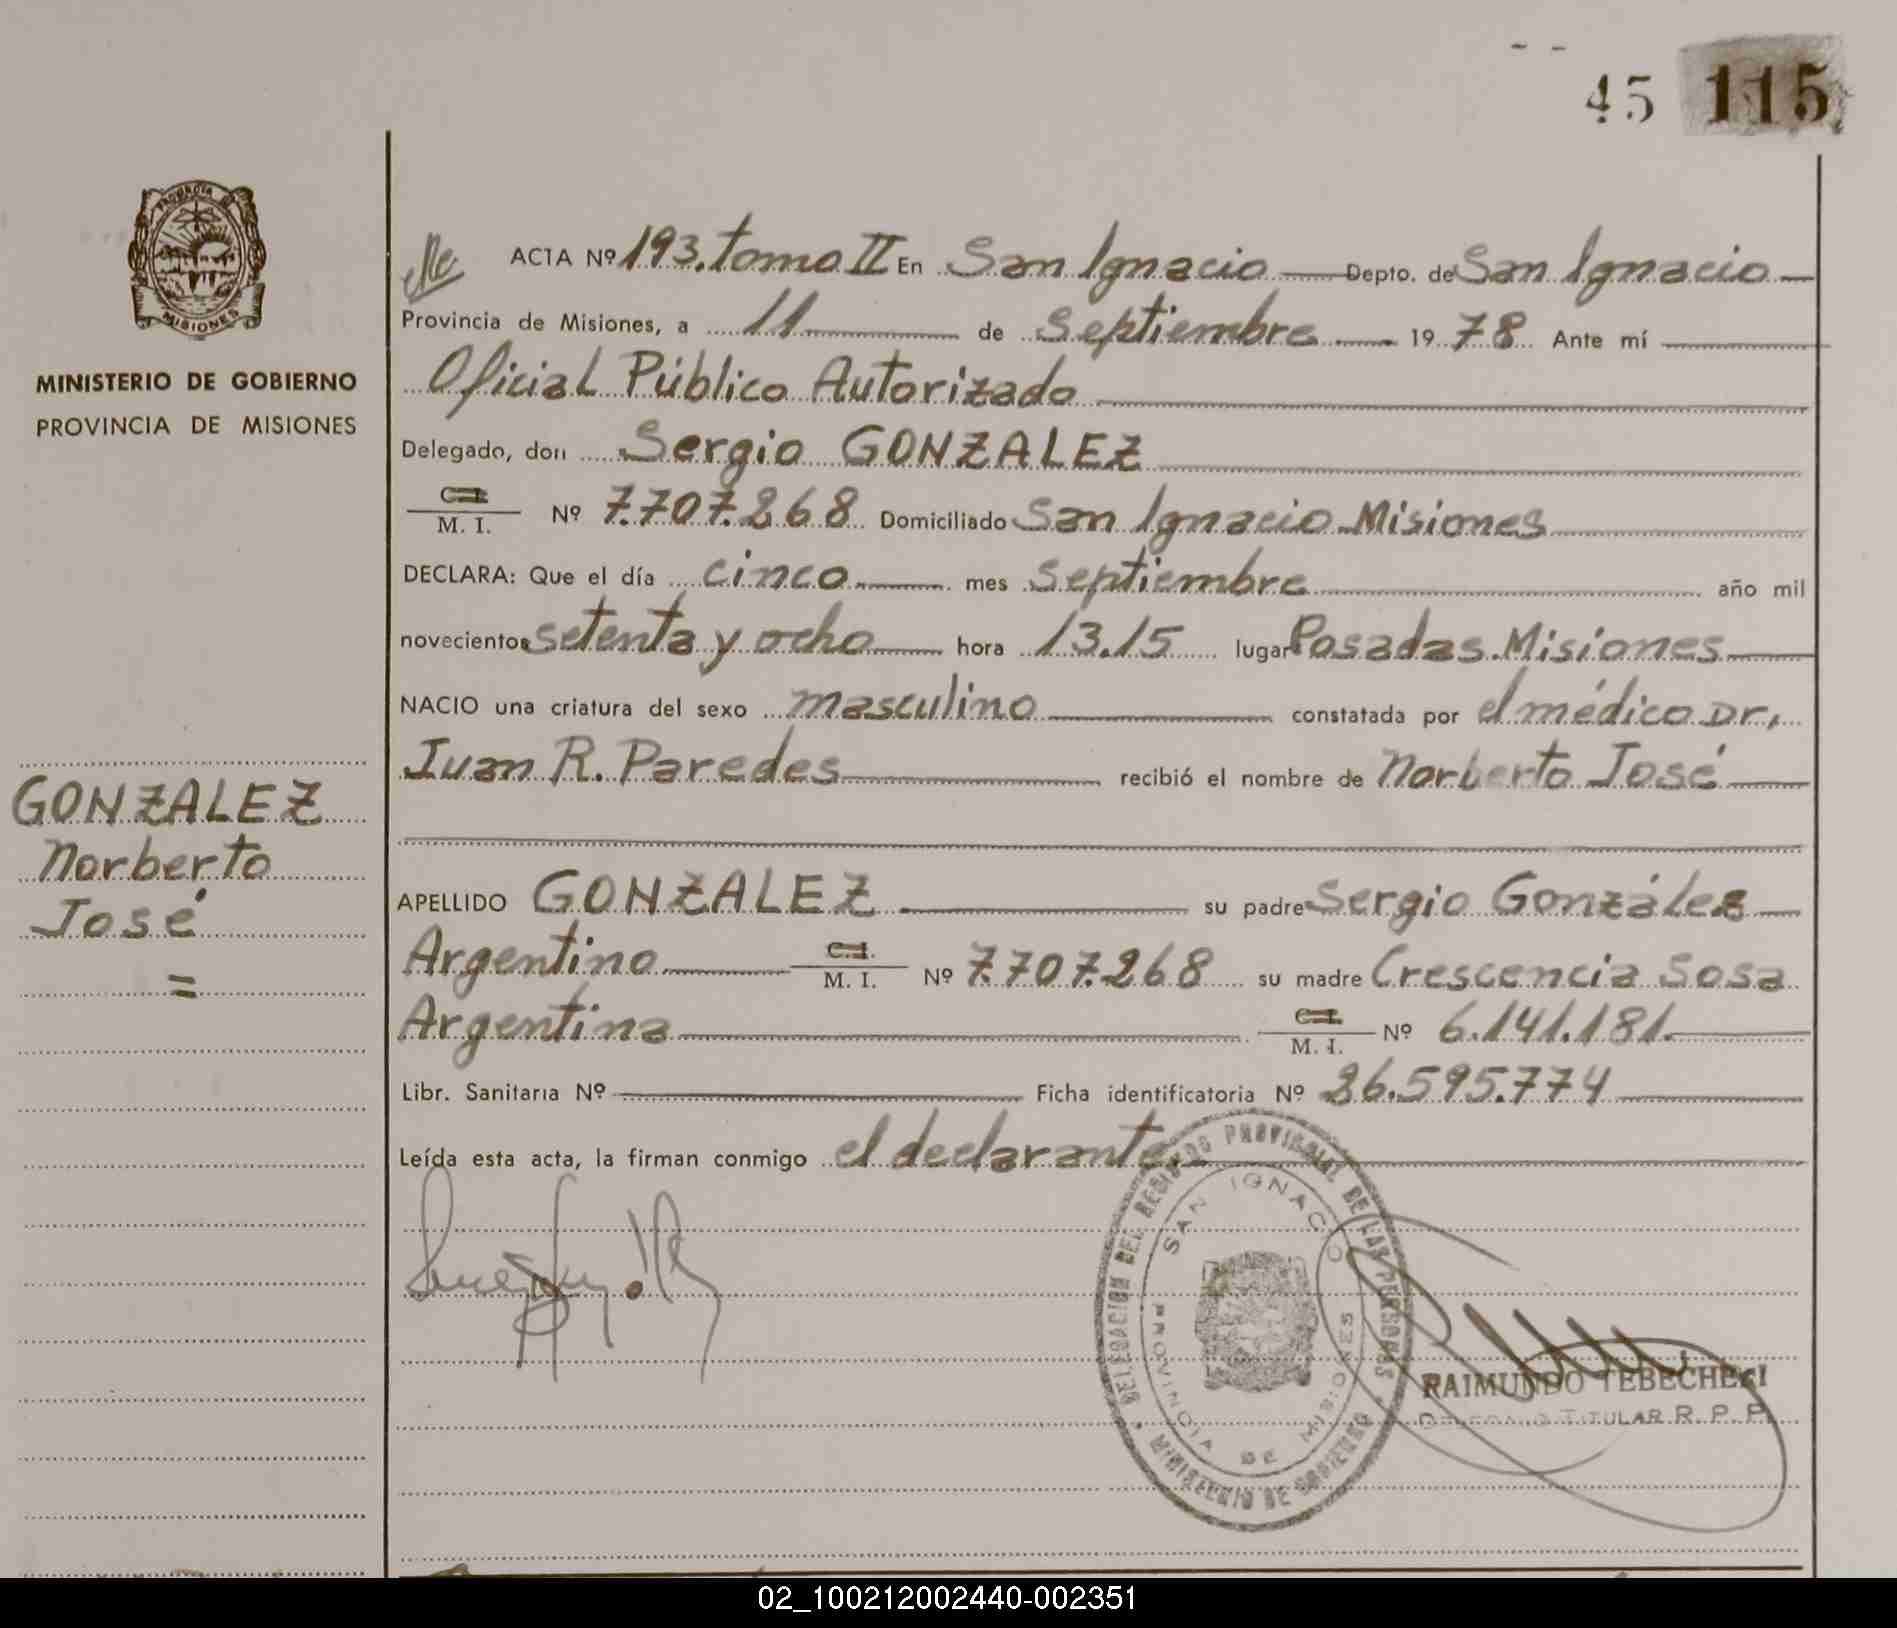 45 115
PROVINCIA DE
MISIONES
MINISTERIO DE GOBIERNO
PROVINCIA DE MISIONES
GONZALEZ
Norberto
José
=
ACTA Nº 193. tomo II En San Ignacio Depto. de San Ignacio
Provincia de Misiones, a 11 de Septiembre 1978 Ante mí
Oficial Público Autorizado
Delegado, don Sergio GONZALEZ
C.I.
M. I. Nº 7.707.268 Domiciliado San Ignacio Misiones
DECLARA: Que el día cinco mes Septiembre año mil
novecientos setenta y ocho hora 13.15 lugar Posadas Misiones
NACIO una criatura del sexo masculino constatada por el médico Dr,
Juan R. Paredes recibió el nombre de Norberto José
APELLIDO GONZALEZ su padre Sergio González
Argentino C.I. M. I. Nº 7.707.268 su madre Crescencia Sosa
Argentina C.I. M. I. Nº 6.141.181.
Libr. Sanitaria Nº Ficha identificatoria Nº 26.595.774
Leída esta acta, la firman conmigo el declarante.
DELEGACION DEL REGISTRO PROVINCIAL DE LAS PERSONAS
SAN IGNACIO
PROVINCIA DE MISIONES
MINISTERIO DE GOBIERNO
RAIMUNDO TEBECHERI
DELEGADO TITULAR R. P. P.
02_100212002440-002351